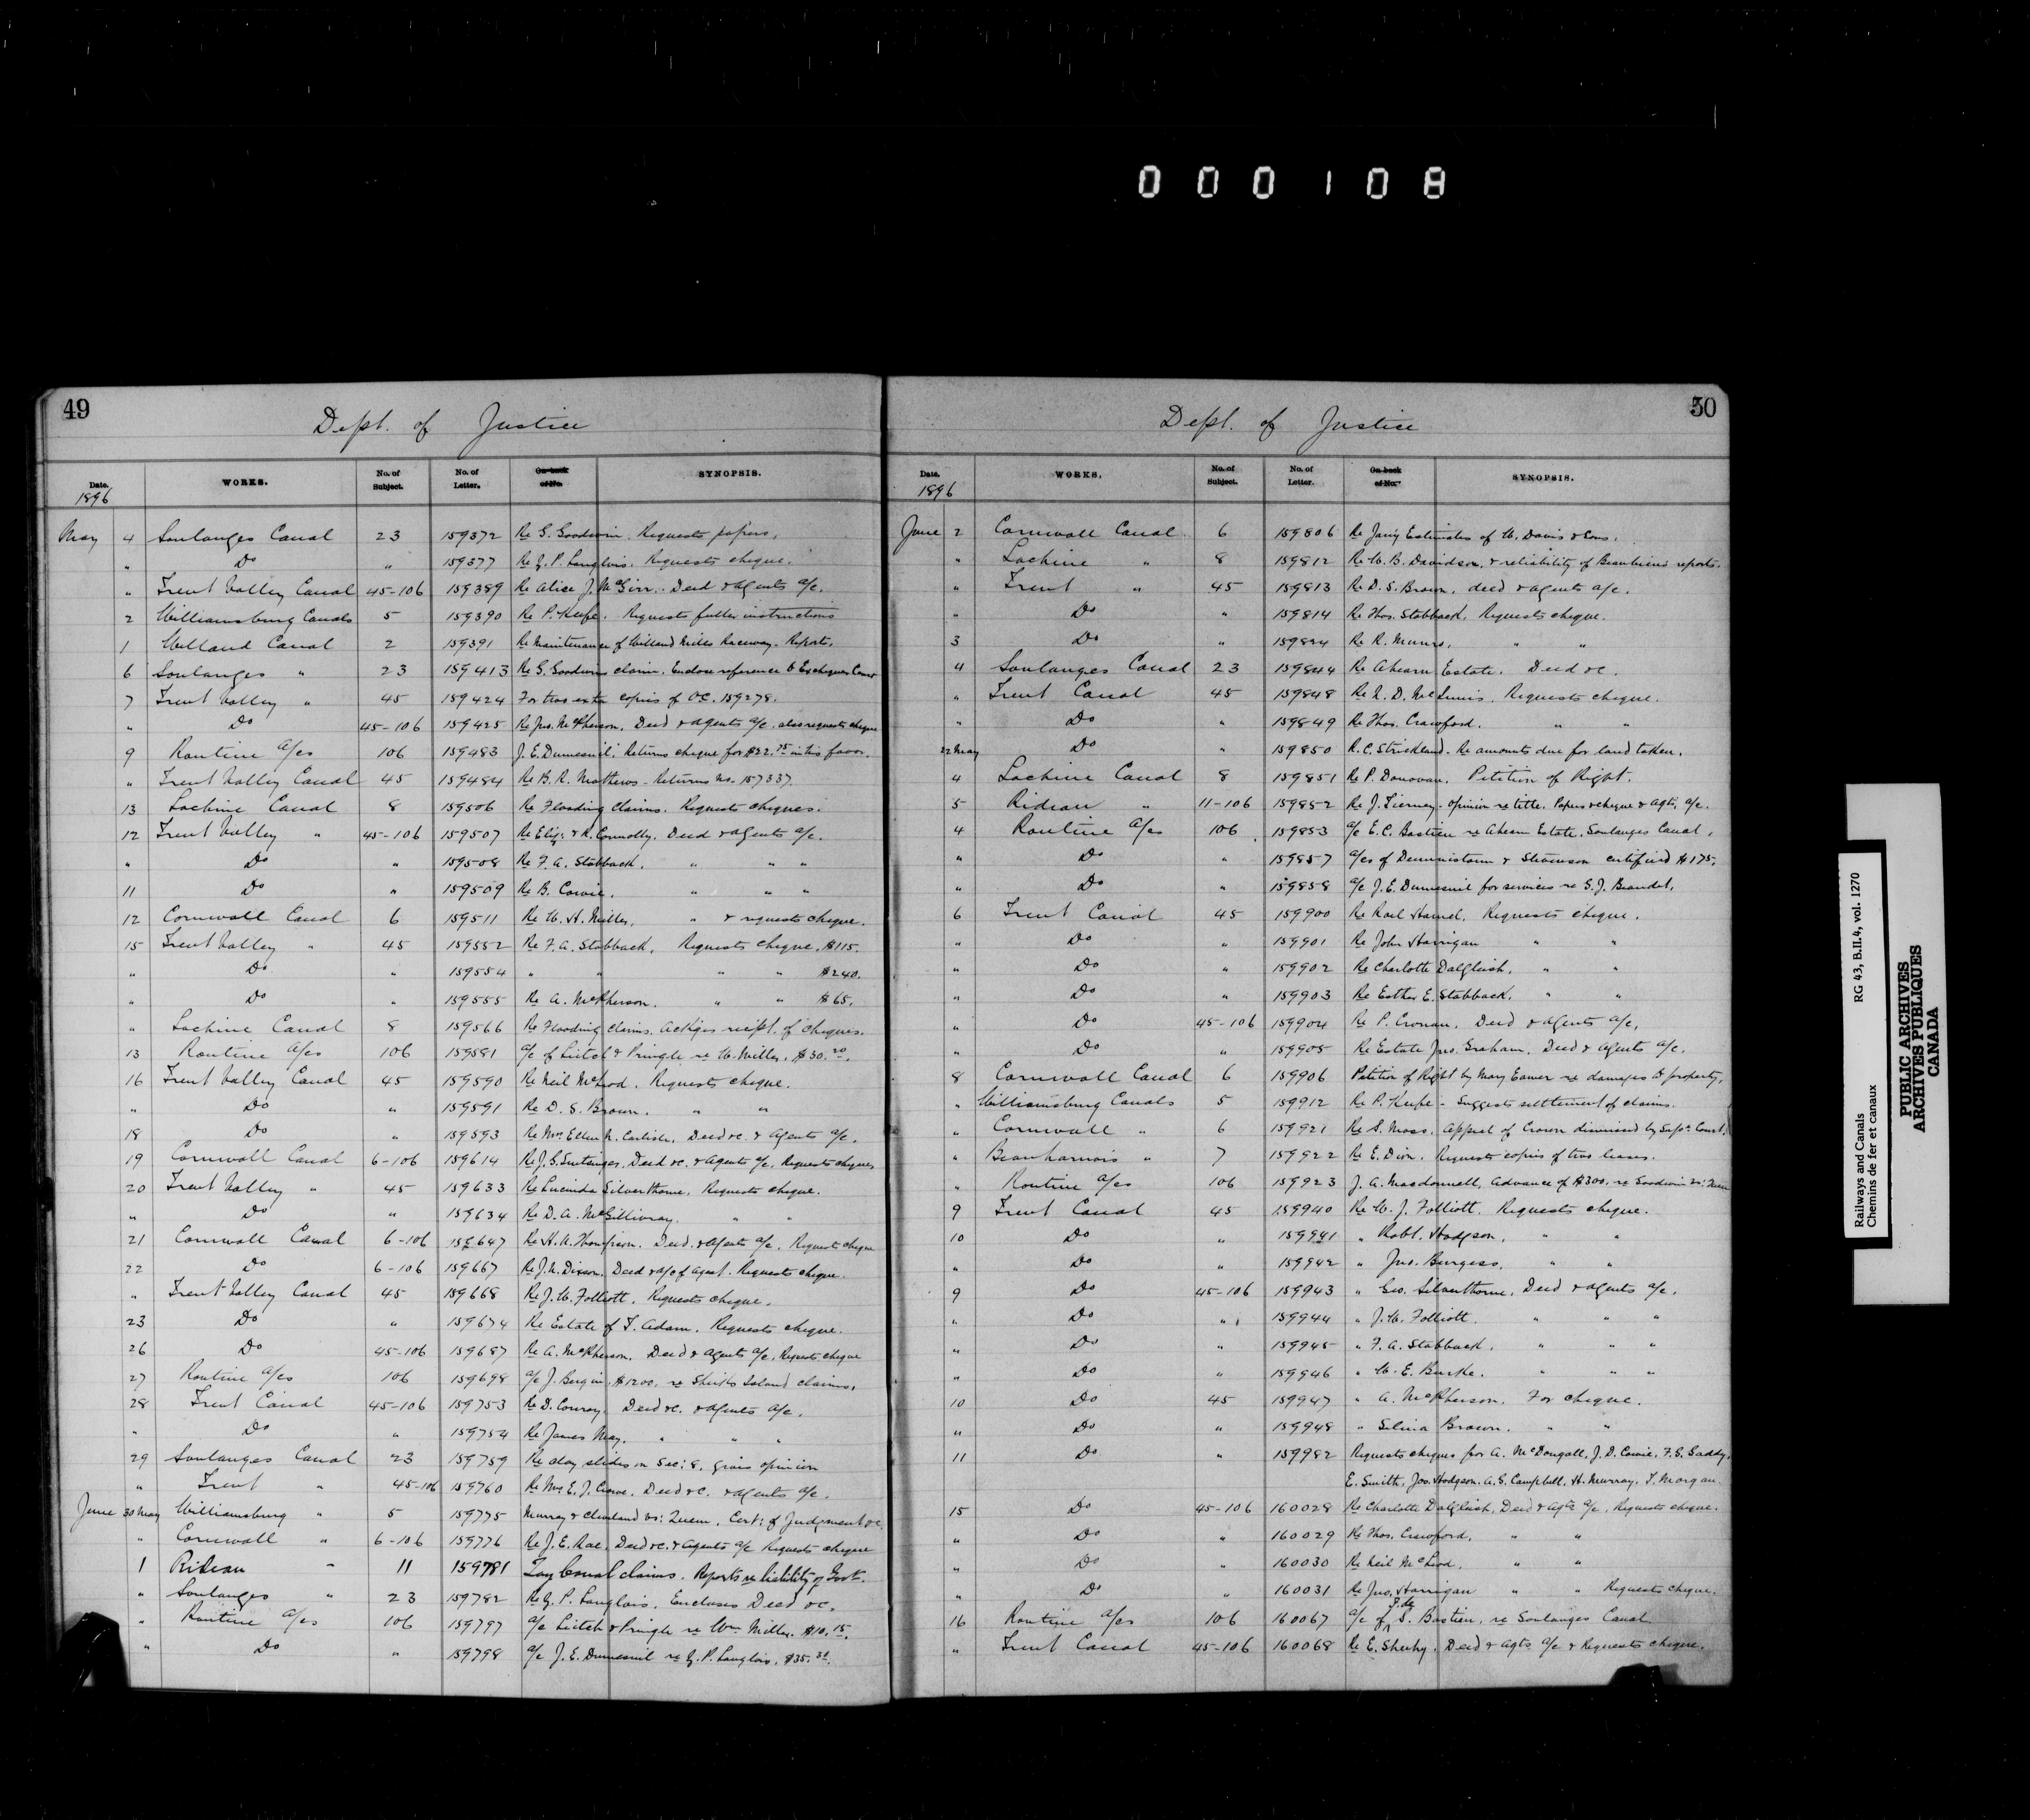 000108
49
Dept. of Justice
Date. WORKS. No. of Subject. No. of Letter. On back of No. SYNOPSIS.
1896
May 4 Soulanges Canal 23 159372 Re G. Goodwin. Requests papers.
" Do " 159377 Re J. P. Langlois. Requests cheque.
" Trent Valley Canal 45-106 159389 Re Alice J. McGirr. Deed & agents a/c.
2 Williamsburg Canals 5 159390 Re P. Keefe. Requests fuller instructions
1 Welland Canal 2 159391 Re Maintenance of Welland Mills Raceway. Reports.
6 Soulanges " 23 159413 Re G. Goodwins claim. Enclose reference to Exchequer Court
7 Trent Valley " 45 159424 For two extra copies of OC. 159278.
" Do 45-106 159425 Re Jno. McPherson. Deed & agents a/c. also requests cheque
9 Routine a/cs 106 159483 J. E. Dumesnil. Returns cheque for $22.75 in his favor.
" Trent Valley Canal 45 159484 Re B. R. Mathews. Returns no. 157337.
13 Lachine Canal 8 159506 Re Flooding claims. Requests cheques.
12 Trent Valley " 45-106 159507 Re Eliz: & R. Connolly. Deed & agents a/c.
" Do " 159508 Re F. A. Stabback. " " "
11 Do " 159509 Re B. Cowie. " " "
12 Cornwall Canal 6 159511 Re W. H. Miller, " & requests cheque.
15 Trent Valley " 45 159552 Re F. A. Stabback. Requests cheque. $115.
" Do " 159554 " " " " $240.
" Do " 159555 Re A. McPherson. " " $65.
" Lachine Canal 8 159566 Re Flooding claims. Ackges. recipt. of cheques.
13 Routine a/cs 106 159581 a/c of Leitch & Pringle re W. Miller. $30.20.
16 Trent Valley Canal 45 159590 Re Neil McLeod. Requests cheque.
" Do " 159591 Re D. S. Brown. " "
18 Do " 159593 Re Mrs Ellen N. Carlisle. Deed &c. & Agents a/c.
19 Cornwall Canal 6-106 159614 Re J. G. Snetsinger. Deed &c. & Agents a/c. Requests cheques
20 Trent Valley " 45 159633 Re Lucinda Silverthorne. Requests cheque.
" Do " 159634 Re D. A. McGillivray. " "
21 Cornwall Canal 6-106 159647 Re H. A. Thompson. Deed. & Agents a/c. Request cheque
22 Do 6-106 159667 Re J. N. Dixson. Deed & a/c of Agent. Requests cheque.
" Trent Valley Canal 45 159668 Re J. W. Folliott. Requests cheque.
23 Do " 159674 Re Estate of T. Adam. Requests cheque.
26 Do 45-106 159687 Re A. McPherson. Deed & Agents a/c. Requests cheque
27 Routine a/cs 106 159698 a/c J. Bergin. $1200. re Sheiks Island claims.
28 Trent Canal 45-106 159753 Re D. Conroy. Deed &c. & agents a/c.
" Do " 159754 Re James May. " " "
29 Soulanges Canal 23 159759 Re clay slides on Sec: 8. gives opinion
" Trent " 45-106 159760 Re Mrs E. J. Crowe. Deed &c. & agents a/c.
June 30 May Williamsburg " 5 159775 Murray & Cleveland vs: Queen. Cert: of Judgement &c.
" Cornwall " 6-106 159776 Re J. E. Rae. Deed &c. & Agents a/c Requests cheque
1 Rideau " 11 159781 Tay Canal claims. Reports re liability of Govt.
" Soulanges " 23 159782 Re J. P. Langlois. Encloses Deed &c.
" Routine a/cs 106 159797 a/c Leitch & Pringle re Wm Miller. $10.15.
" Do " 159798 a/c J. E. Dumesnil re J. P. Langlois. $35.31.
50
Dept. of Justice
Date. WORKS. No. of Subject. No. of Letter. On back of No. SYNOPSIS.
1896
June 2 Cornwall Canal 6 159806 Re Jany Estimates of W. Davis & Sons.
" Lachine " 8 159812 Re W. B. Davidson. & reliability of Beaubiens reports.
" Trent " 45 159813 Re D. S. Brown. deed & agents a/c.
" Do " 159814 Re Thos. Stabback. Requests cheque.
3 Do " 159824 Re R. Munro. " "
4 Soulanges Canal 23 159844 Re Ahearn Estate. Deed &c.
" Trent Canal 45 159848 Re R. D. McInnis. Requests cheque.
" Do " 159849 Re Thos. Crawford. " "
22 May Do " 159850 R. C. Strickland. Re amounts due for land taken.
4 Lachine Canal 8 159851 Re P. Donovan. Petition of Right.
5 Rideau " 11-106 159852 Re J. Tierney. opinion re title. Papers & cheque & Agts. a/c.
4 Routine a/cs 106 159853 a/c E. C. Bastien re Ahearn Estate. Soulanges Canal.
" Do " 159857 a/cs of Dennistoun & Stevenson certified $175.
" Do " 159858 a/c J. E. Dumesnil for services re G. J. Beaudet.
6 Trent Canal 45 159900 Re Rael Hamel. Requests cheque.
" Do " 159901 Re John Harrigan " "
" Do " 159902 Re Charlotte Dalgleish. " "
" Do " 159903 Re Esther E. Stabback. " "
" Do 45-106 159904 Re P. Cronan. Deed & agents a/c.
" Do " 159905 Re Estate Jno. Graham. Deed & Agents a/c.
8 Cornwall Canal 6 159906 Petition of Right by Mary Eamer re damages to property.
" Williamsburg Canals 5 159912 Re P. Keefe - Suggests settlement of claims.
" Cornwall " 6 159921 Re S. Moss. Appeal of Crown dismissed by Supr. Court.
" Beauharnois " 7 159922 Re E. Dion. Requests copies of two leases.
" Routine a/cs 106 159923 J. A. Macdonnell. Advance of $300. re Goodwin vs: Queen
9 Trent Canal 45 159940 Re W. J. Folliott. Requests cheque.
10 Do " 159941 " Robt. Hodgson. " "
" Do " 159942 " Jno. Burgess. " "
9 Do 45-106 159943 " Geo. Silverthorne. Deed & agents a/c.
" Do " 159944 " J. W. Folliott. " " "
" Do " 159945 " F. A. Stabback. " " "
" Do " 159946 " W. E. Burke. " " "
10 Do 45 159947 " A. McPherson. For cheque.
" Do " 159948 " Selina Brown. " "
11 Do " 159982 Requests cheques for A. McDougall, J. D. Cowie, F. G. Gaddy,
E. Smith, Jos. Hodgson. A. G. Campbell. H. Murray. T. Morgan.
15 Do 45-106 160028 Re Charlotte Dalgleish. Deed & Agts a/c. Requests cheque.
" Do " 160029 Re Thos. Crawford. " "
" Do " 160030 Re Neil McLeod. " "
" Do " 160031 Re Jno. Harrigan " " Requests cheque.
16 Routine a/cs 106 160067 a/c of S. Bastien. re Soulanges Canal
" Trent Canal 45-106 160068 Re E. Sheehy. Deed & Agts a/c & Requests cheque.
Railways and Canals RG 43, B.II.4, vol. 1270
Chemins de fer et canaux
PUBLIC ARCHIVES
ARCHIVES PUBLIQUES
CANADA